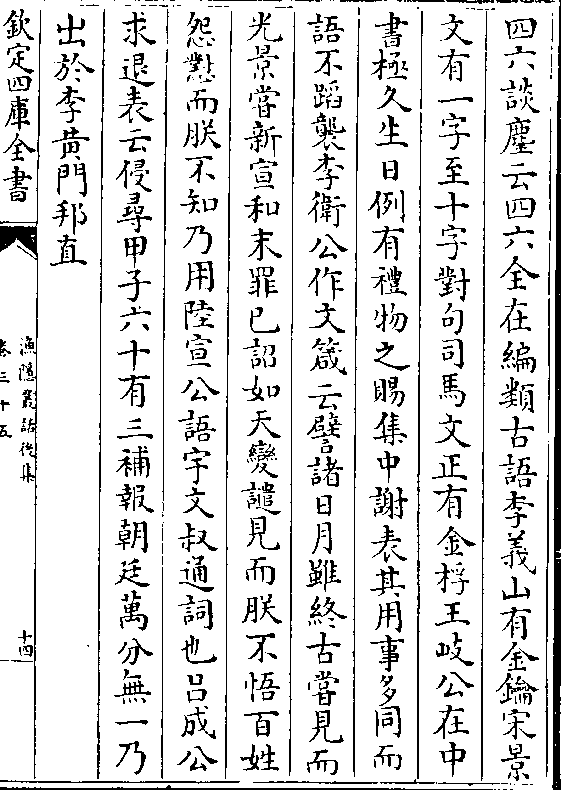 四六談麈云四六全在編類古語李義山有金鑰宋景
文有一字至十字對句司馬文正有金桴王岐公在中
書極久生日例有禮物之賜集中謝表其用事多同而
語不蹈襲李衛公作文箴云譬諸日月雖終古嘗見而
光景嘗新宣和末罪已詔如天變譴見而朕不悟百姓
怨懟而朕不知乃用陸宣公語宇文叔通詞也吕成公
求退表云侵尋甲子六十有三補報朝廷萬分無一乃
出於李黄門邦直
欽定四庫全書
漁隱叢話後集
卷三十五
十四